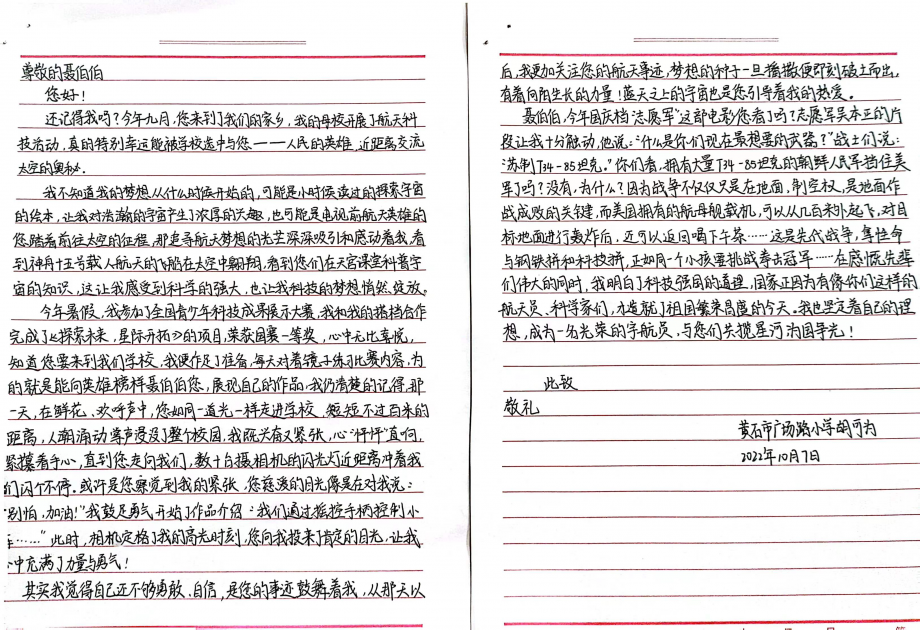 尊敬的聂伯伯
您好！
还记得我吗？今年九月，您来到了我们的家乡，我的母校开展了航天科
技活动，真的特别幸运能被学校选中与您——人民的英雄，近距离交流
太空的奥秘．
我不知道我的梦想从什么时候开始的，可能是小时候读过的探索宇宙
的绘本，让我对浩瀚的宇宙产生了浓厚的兴趣，也可能是电视前航天英雄的
您踏着前往太空的征程，那追寻航天梦想的光芒深深吸引和感动着我，看
到神舟十五号载人航天的飞船在太空中翱翔，看到您们在天宫课堂科普宇
宙的知识，这让我感受到科学的强大，也让我科技的梦想悄然绽放。
今年暑假，我参加了全国青少年科技成果展示大赛，我和我的搭档合作
完成了《探索未来，星际开拓》的项目，荣获国赛一等奖，心中无比喜悦，
知道您要来到我们学校，我便作足了准备，每天对着镜子练习比赛内容，为
的就是能向英雄榜样聂伯伯您，展现自己的作品，我仍清楚的记得，那
一天，在鲜花、欢呼声中，您如同一道光一样走进学校，短短不过百米的
距离，人潮涌动，掌声浸没了整个校园，我既兴奋又紧张，心“怦怦”直响，
紧攥着手心，直到您走向我们，数十台摄相机的闪光灯近距离冲着我
们闪个不停．或许是您察觉到我的紧张，您慈漫的目光像是在对我说：
“别怕，加油！”我鼓足勇气开始了作品介绍：“我们通过摇控手柄控制小
车……”此时，相机定格了我的高光时刻，您向我投来了肯定的目光，让我
心中充满了力量与勇气！
其实我觉得自己还不够勇敢、自信，是您的事迹鼓舞着我，从那天以
后，我更加关注您的航天事迹，梦想的种子一旦播撒便即刻破土而出，
有着向阳生长的力量！蓝天之上的宇宙也是您引导着我的热爱。
聂伯伯，今年国庆档“志愿军”这部电影您看了吗？志愿军吴本正的片
段让我十分触动，他说：“什么是你们现在最想要的武器？”战士们说：
“苏制T34-85坦克。”你们看，拥有大量T34-85坦克的朝鲜人民军挡住美
军了吗？没有，为什么？因为战争不仅仅只是在地面，制空权，是地面作
战成败的关键，而美国拥有的航母舰载机，可以从几百米外起飞，对目
标地面进行轰炸后，还可以返回喝下午茶……这是先代战争，是性命
与钢铁拼和科技拼，正如同一个小孩要挑战拳击冠军……在感慨先辈
们伟大的同时，我明白了科技强国的道理，国家正因为有像你们这样的
航天员、科学家们，才造就了祖国繁荣昌盛的今天。我也坚定着自己的理
想，成为一名光荣的宇航员，与您们共揽星河为国争光！
此致
敬礼
黄石市广场路小学胡可为
2022年10月7日